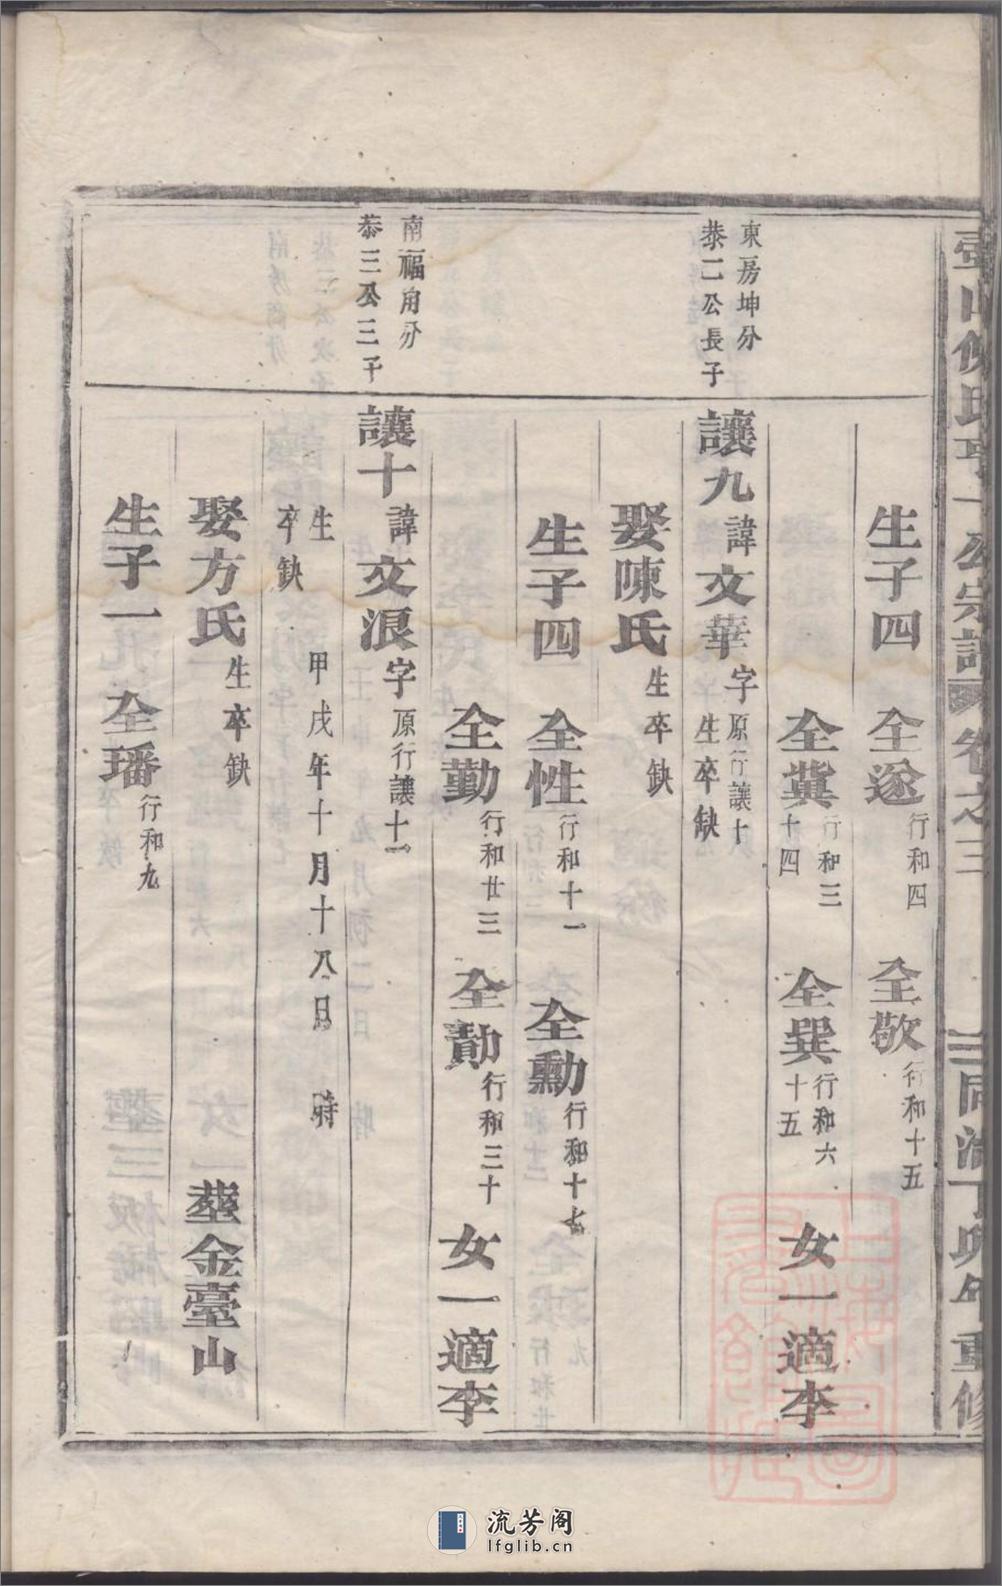 壺山倪氏亨一公宗譜 卷之三 同治丁卯年重修
生子四 全遂行和四 全敬行和十五
全冀行和三十四 全巽行和六十五 女一適李
東房坤分
恭二公長子
讓九諱文華字 原行讓十 生卒缺
娶陳氏生卒缺
生子四 全性行和十一 全勳行和十七
全勤行和廿三 全勣行和三十 女一適李
南福角分
恭三公三子
讓十諱文浪字 原行讓十一
生 甲戌年十月十八日 時
卒缺
娶方氏生卒缺 葬金臺山
生子一 全璠行和九
流芳阁
lfglib.cn